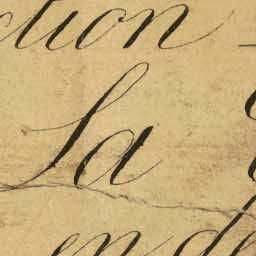 ction
La
en de